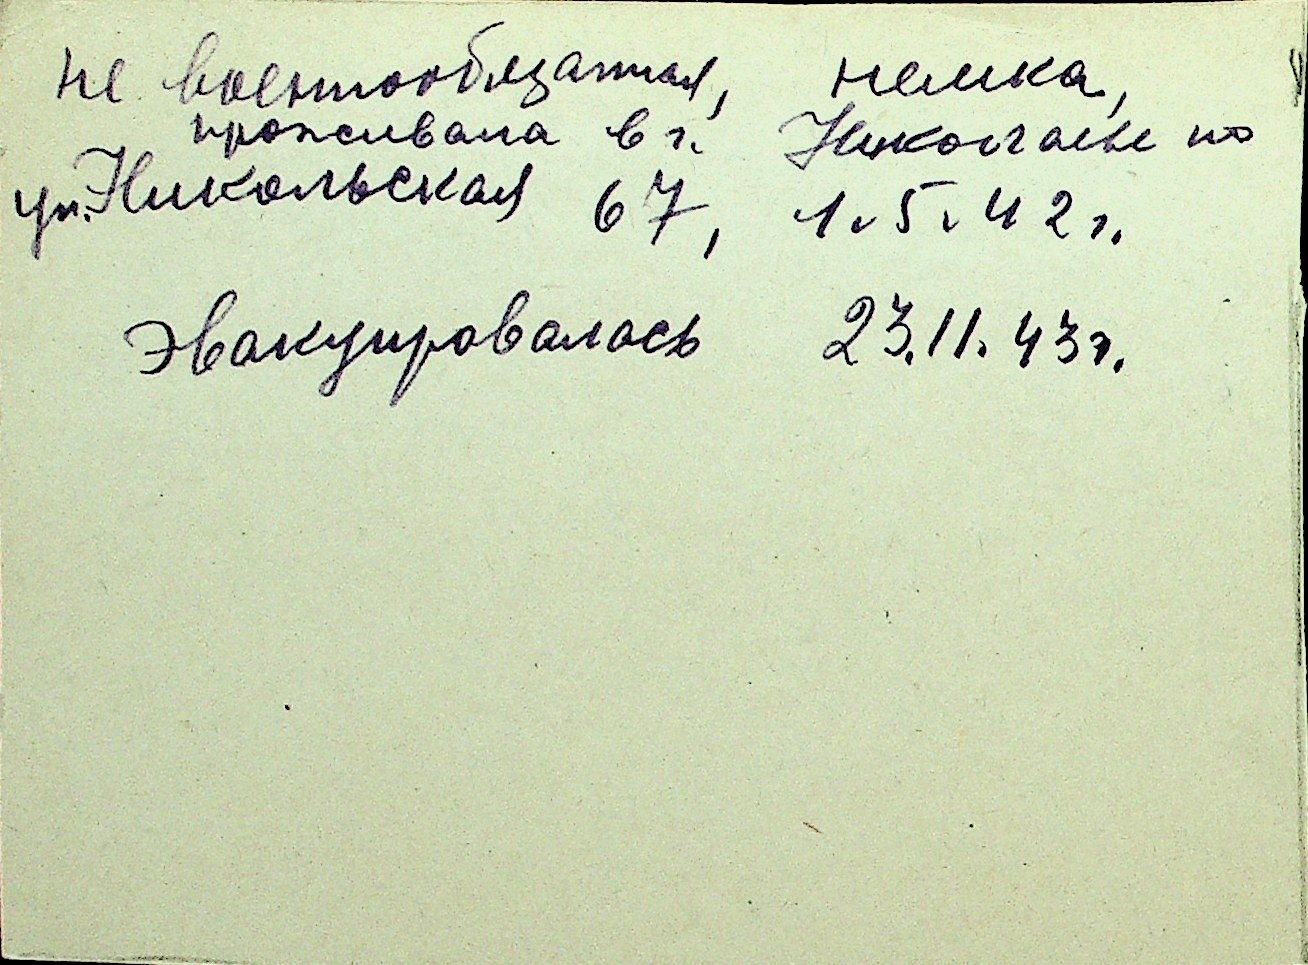 не военнообязанная, немка,
проживала в г. Николаеве по
ул. Никольская 67, 1.5.42 г.
эвакуировалась 23.11.43 г.